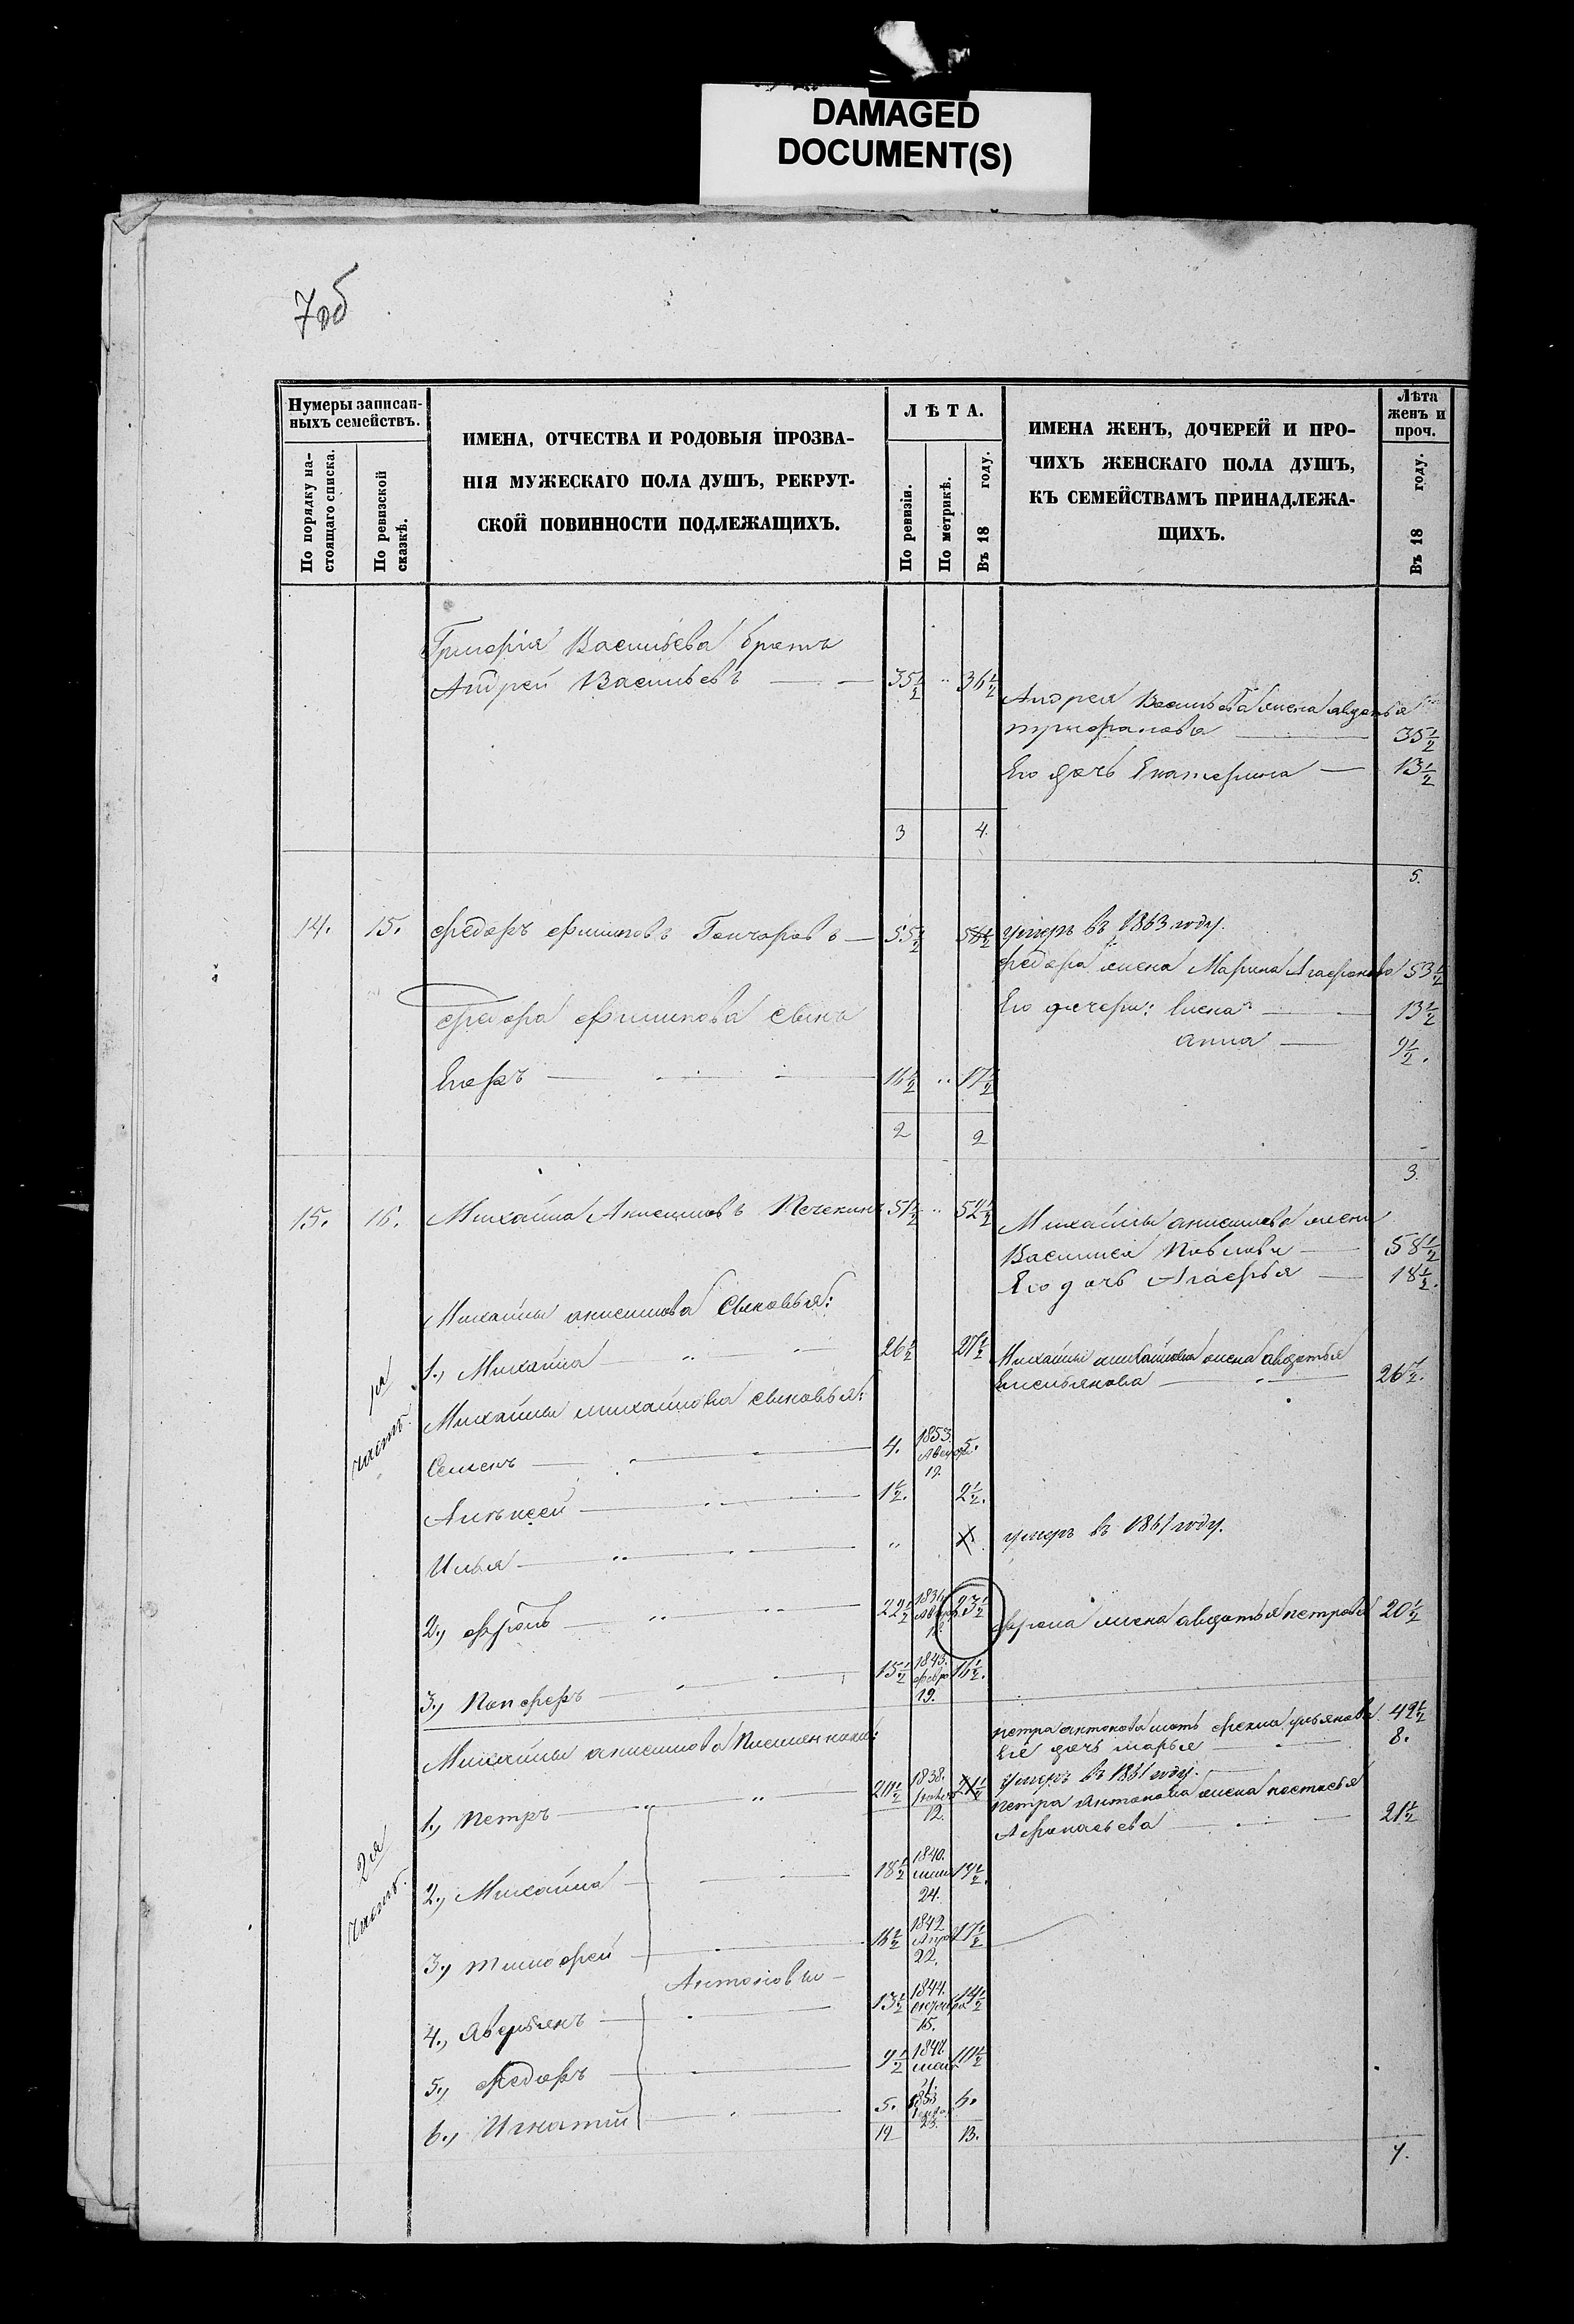 DAMAGED
DOCUMENT(S)
7об
Нумеры записан-
ныхъ семействъ.
По порядку на-
стоящаго списка.
По ревизской
сказкѣ.
ИМЕНА, ОТЧЕСТВА И РОДОВЫЯ ПРОЗВА-
НІЯ МУЖЕСКАГО ПОЛА ДУШЪ, РЕКРУТ-
СКОЙ ПОВИННОСТИ ПОДЛЕЖАЩИХЪ.
ЛѢТА.
По ревизіи.
По метрикѣ.
Въ 18 году.
ИМЕНА ЖЕНЪ, ДОЧЕРЕЙ И ПРО-
ЧИХЪ ЖЕНСКАГО ПОЛА ДУШЪ,
КЪ СЕМЕЙСТВАМЪ ПРИНАДЛЕЖА-
ЩИХЪ.
Лѣта
женъ и
проч.
Въ 18 году.
Григорія Васильева братъ
Андрей Васильевъ — 35½ " 36½
Андрея Васильева жена авдотья
трифонова — 35½
Его дочь Екатерина — 13½
3 4.
5.
14. 15. Федоръ Филиповъ Гончаровъ — 55½ 56½ умеръ въ 1863 году.
Федора жена Марина Агафонова 53½
Федора Филипова сынъ
Его дочери: Елена — 13½
анна — 9½.
Егоръ — 16½ " 17½
2 2
3.
15. 16. Михайла Анисимовъ Печекинъ 51½ " 52½
Михайлы анисимова жена
Василиса Павлова — 58½
Его дочь Агафья — 18½.
Михайлы анисимова Сыновья:
1я часть.
1., Михайла — " — 26½ 27½
Михайлы михайлова жена авдотья
Емельянова — 26½.
Михайлы михайлова сыновья:
Семенъ — 4. 1853. 19. 5.
Алексей — 1½. 2½.
Илья — " — " умеръ въ 1861 году.
2., Фролъ — " — 22½ 1836 23½
Фрола жена авдотья петрова 20½
3., Панферъ — 15½ 1843. февр 19. 16½.
Михайлы анисимова Племянники:
петра антонова мать Фекла ульянова 49½
Ее дочь марья — 8.
2я часть.
1., Петръ — " — " 20½ 1838. 12. 21½ умеръ въ 1861 году.
Петра Антонова жена настасья
Афанасьева — 21½
2., Михайла — 18½ 1840. 24. 19½.
3., Тимофей — 16½ 1842 Апр 22. 17½
Антоновы —
4., Аверьянъ — 13½ 1844. 15. 14½
5., Федоръ — 9½ 10½
6., Игнатій — 5. 1853 23. 6.
12 13.
7.